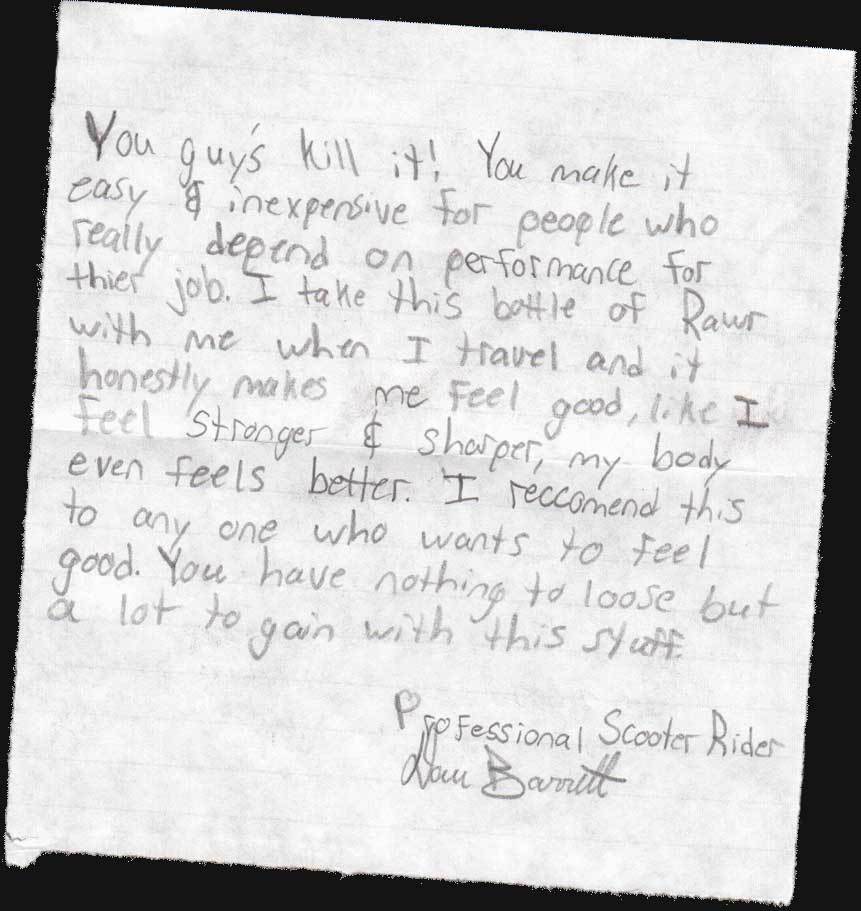 You guy's kill it! You make it
easy & inexpensive for people who
really depend on performance for
thier job. I take this bottle of Rawr
with me when I travel and it
honestly makes me feel good, like I
feel stronger & sharper, my body
even feels better. I reccomend this
to any one who wants to feel
good. You have nothing to loose but
a lot to gain with this stuff.
Professional Scooter Rider
Barrett